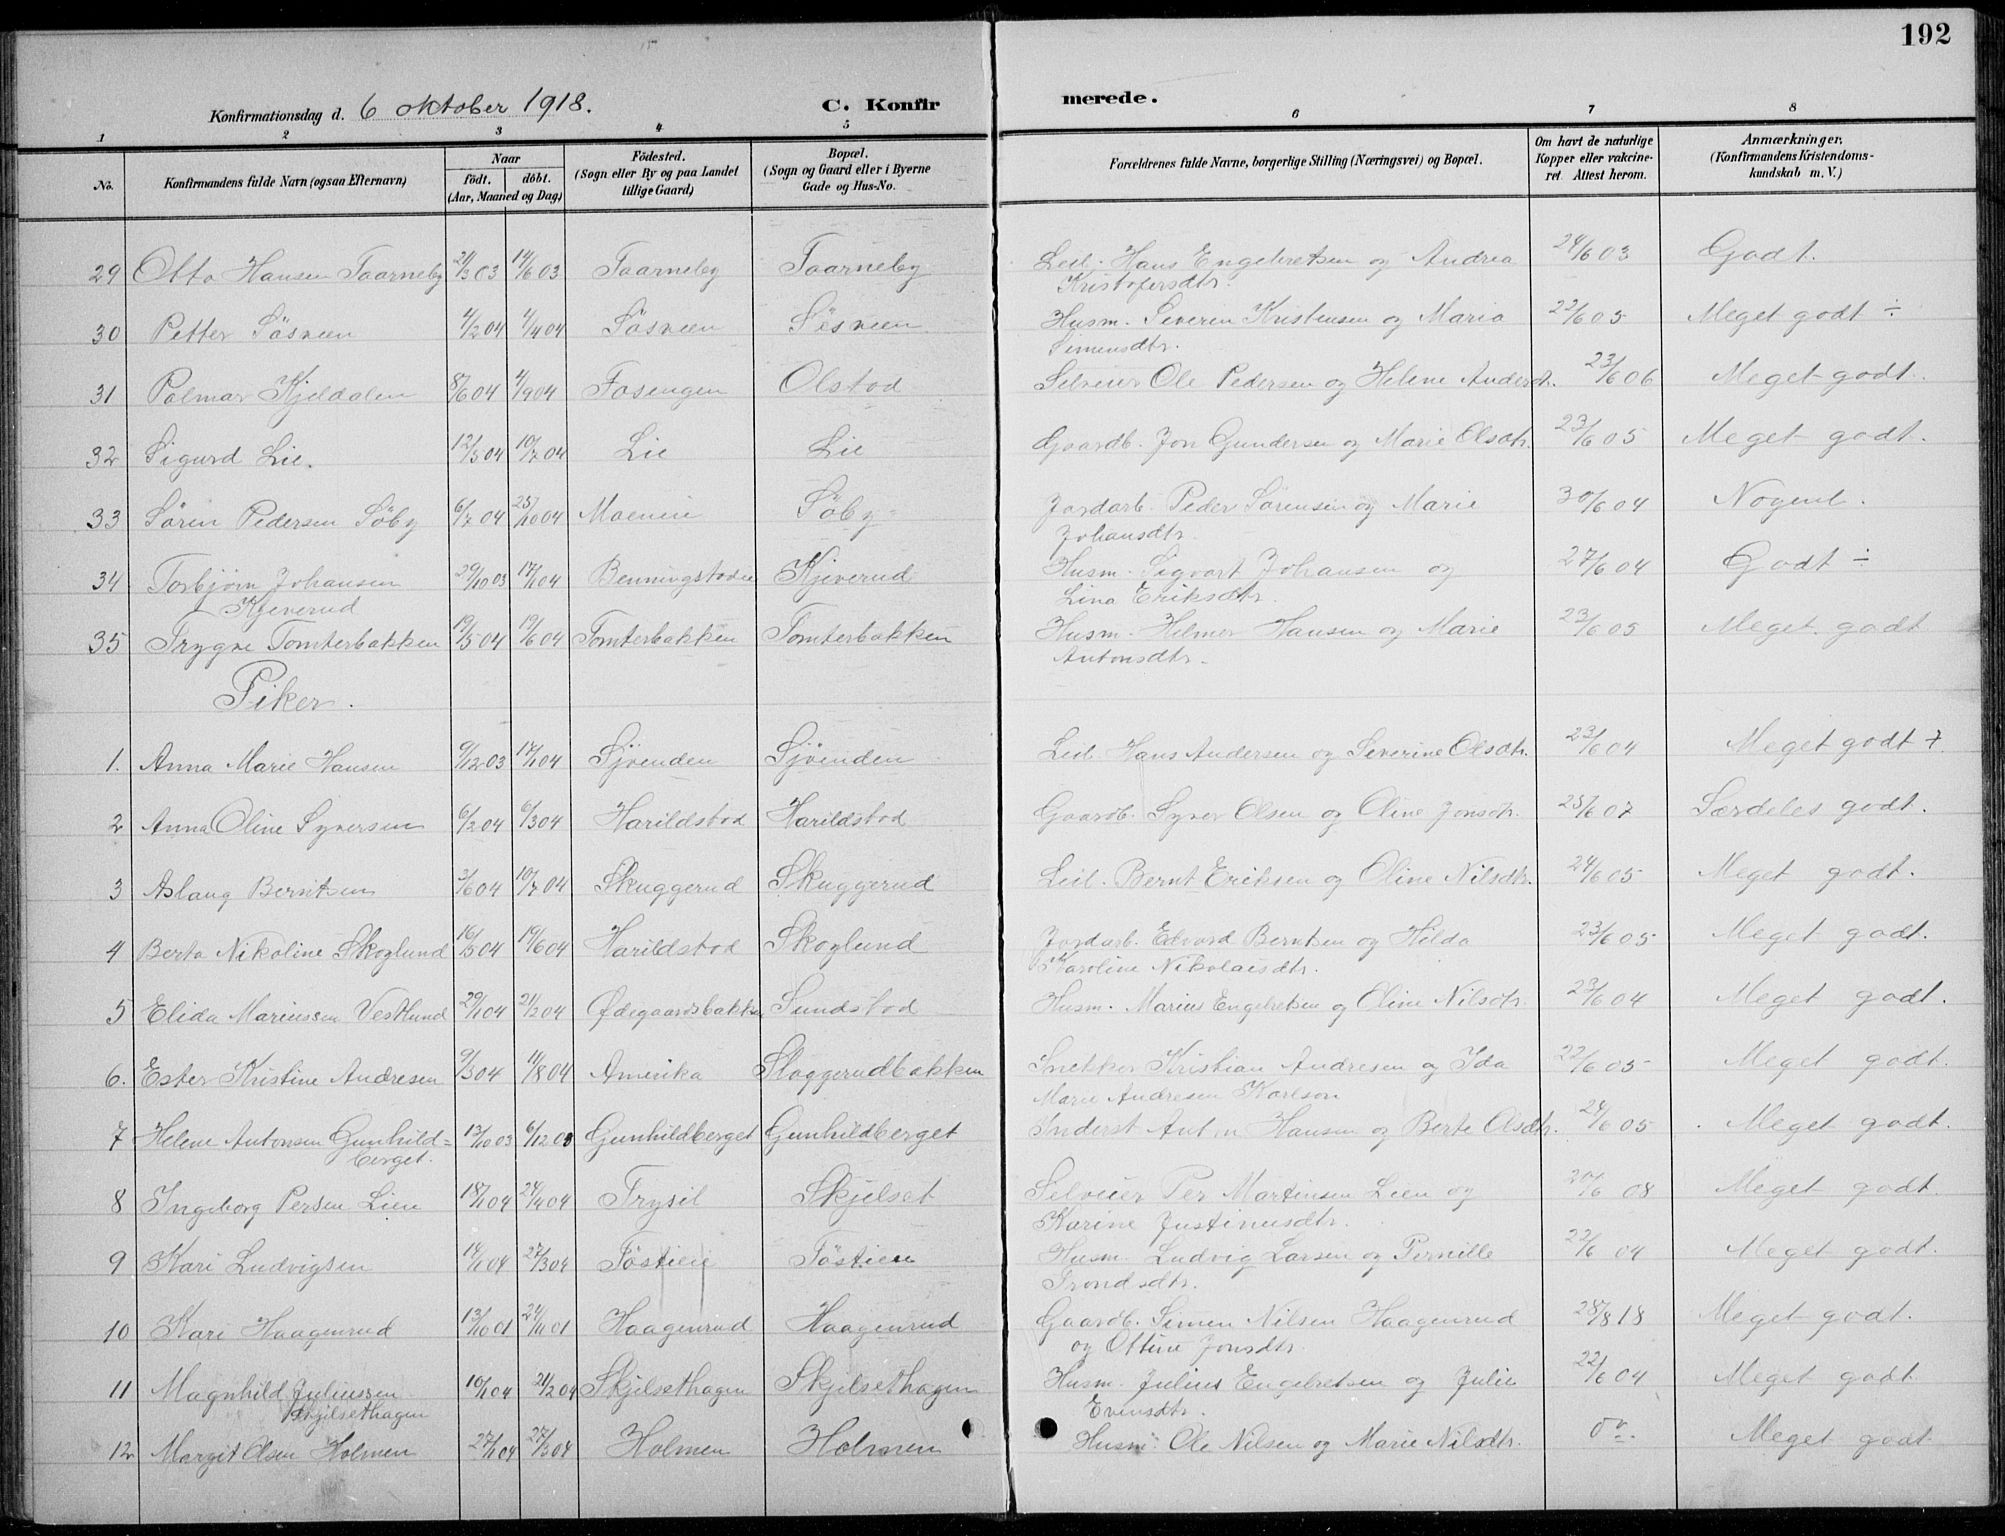 192
Konfirmationsdag d. 6 oktober 1918. C. Konfir merede.
1 2 3 4 5 6 7 8
No. Konfirmandens fulde Navn (ogsaa Efternavn) Naar født. døbt. (Aar, Maaned og Dag) Fødested. (Sogn eller By og paa Landet tillige Gaard) Bopæl. (Sogn og Gaard eller i Byerne Gade og Hus-No. Forældrenes fulde Navne, borgerlige Stilling (Næringsvei) og Bopæl. Om havt de naturlige Kopper eller vakcineret. Attest herom. Anmærkninger. (Konfirmandens Kristendomskundskab m. V.)
29 Otto Hansen Taarneby 21/3 03 14/6 03 Taarneby Taarneby Leil. Hans Engebretsen og Andrea 24/6 03 Godt.
Kristofersdtr.
30 Petter Søsveen 4/2 04 4/4 04 Søsveen Søsveen Husm. Severin Kristensen og Maria 22/6 05 Meget godt ÷
Simensdtr.
31 Palmar Kjeldalen 8/6 04 4/9 04 Fosengen Olstad Selveier Ole Pedersen og Helene Andersdtr. 23/6 06 Meget godt.
32 Sigurd Lie. 12/5 04 10/7 04 Lie Lie Gaardb. Jon Gundersen og Marie Olsdtr. 23/6 05 Meget godt.
33 Søren Pedersen Søby 6/7 04 23/10 04 Moeneie Søby Jordarb. Peder Sørensen og Marie 30/6 04 Nogenl.
Johansdtr.
34 Torbjørn Johansen 29/10 03 17/1 04 Benningstadeie Kjeverud Husm. Sigvart Johansen og 27/6 04 Godt ÷
Kjeverud Lina Eriksdtr.
35 Trygve Tomterbakken 19/5 04 19/6 04 Tomterbakken Tomterbakken Husm. Helmer Hansen og Marie 23/6 05 Meget godt
Antonsdtr.
Piker.
1. Anna Marie Hansen 9/12 03 17/1 04 Sjøenden Sjøenden Leil. Hans Andersen og Severine Olsdtr. 23/6 04 Meget godt +
2 Anna Oline Syversen 6/2 04 6/3 04 Harildstad Harildstad Gaardb. Syver Olsen og Oline Jonsdtr. 25/6 07 Særdeles godt.
3 Aslaug Berntsen 3/6 04 10/7 04 Skuggerud Skuggerud Leil. Bernt Eriksen og Oline Nilsdtr. 24/6 05 Meget godt.
4 Berta Nikoline Skoglund 16/5 04 19/6 04 Harildstad Skoglund Jordarb. Edvard Berntsen og Hilda 23/6 05 Meget godt.
Karoline Nikolaisdtr.
5 Elida Mariussen Vestlund 29/1 04 21/2 04 Ødegaardsbakken Sundstad Husm. Marius Engebretsen og Oline Nilsdtr. 23/6 04 Meget godt.
6. Ester Kristine Andresen 9/3 04 11/8 04 Amerika Slaggerudbakken Snekker Kristian Andresen og Ida 22/6 05 Meget godt.
Marie Andresen Karlson
7 Helene Antonsen Gunhild- 13/10 03 6/12 03 Gunhildberget Gunhildberget Inderst Anton Hansen og Berte Olsdtr. 24/6 05 Meget godt.
berget.
8 Ingeborg Persen Lien 18/1 04 24/4 04 Trysil Skjelset Selveier Per Martinsen Lien og 20/6 08 Meget godt.
Karine Justinusdtr.
9 Kari Ludvigsen 14/1 04 27/3 04 Tøstieie Tøstieie Husm. Ludvig Larsen og Pernille 22/6 04 Meget godt.
Trondsdtr.
10 Kari Haagenrud 13/10 01 24/11 01 Haagenrud Haagenrud Gaardb. Simen Nilsen Haagenrud 28/8 18 Meget godt.
og Ottine Jonsdtr.
11 Magnhild Juliussen 10/1 04 21/2 04 Skjelsethagen Skjelsethagen Husm. Julius Engebretsen og Julie 22/6 04 Meget godt
Skjelsethagen Evensdtr.
12 Margit Olsen Holmen 27/1 04 27/3 04 Holmen Holmen Husm. Ole Nilsen og Marie Nilsdtr. Meget godt